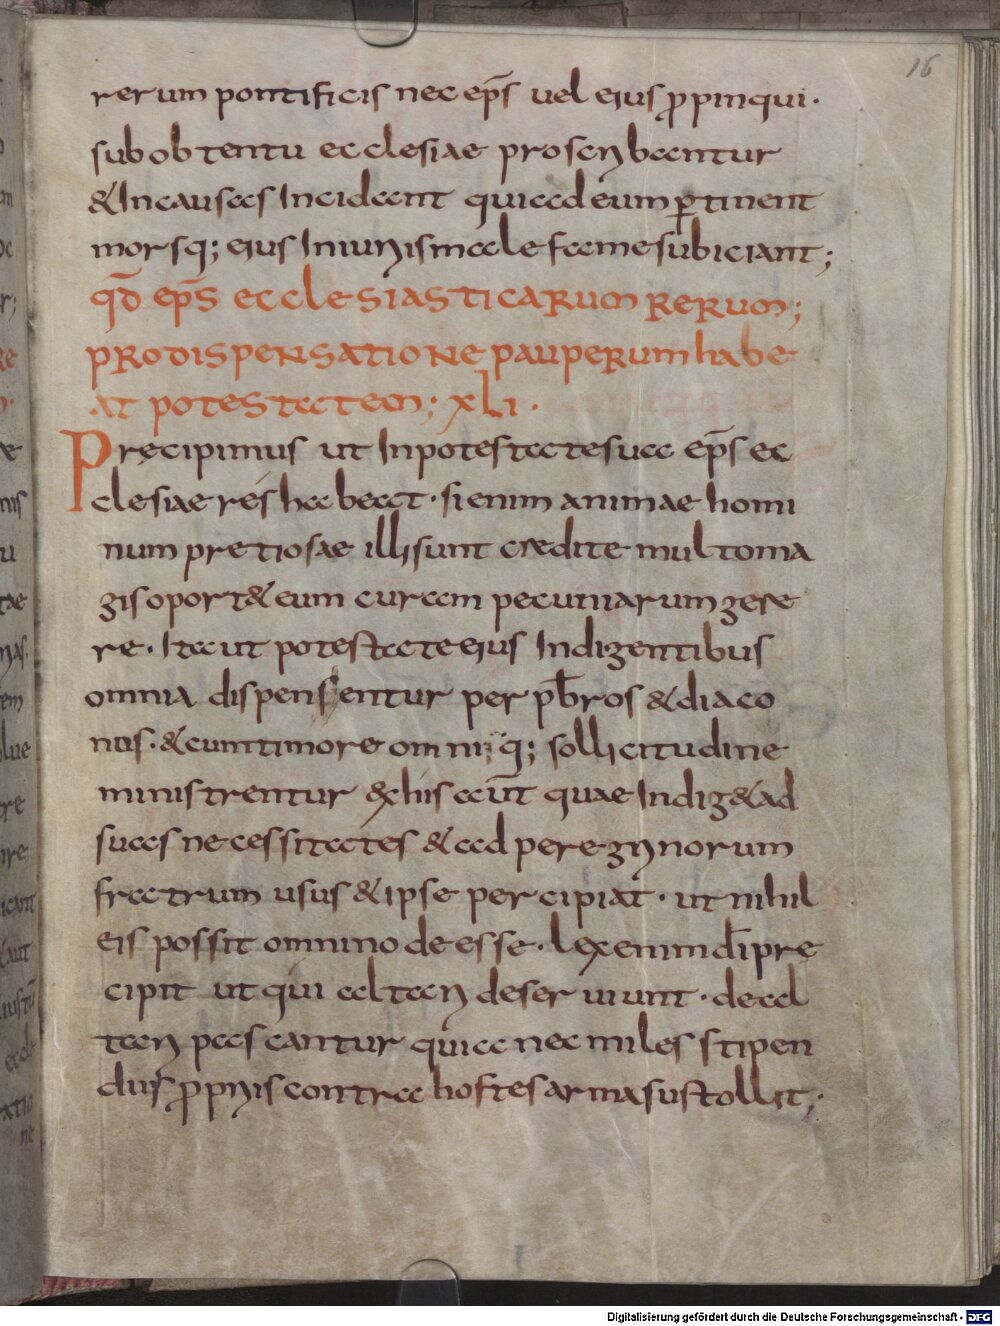 16
rerum pontificis nec ep̄s uel eius ꝓpinqui·
sub obtentu ecclesiae proscribantur
& In causas Incidant qui ad eum ꝑtinent
morsq; eius Iniuriis malae fame subiciant;
qd̄ ep̄s ecclesiasticarum rerum;
pro dispensatione pauperum habe
at potestatem; xli·
Pręcipimus ut In potestate sua ep̄s ec
clesiae res habeat· si enim animae homi
num pretiosae illi sunt credite multo ma
gis oport& eum curam pecuniarum gere
re· Ita ut potestate eius Indigentibus
omnia dispensentur per pb̄ros & diaco
nus· & cum timore omniq; sollicitudine
ministrentur ex his aut̄ quae Indig& ad
suas necessitates & ad peregrinorum
fratrum usus & ipse percipiat· ut nihil
eis possit omnino deesse· lex enim dī pre
cipit ut qui altari deseruiunt· de al
tari pascantur quia nec miles stipen
diis ꝓpriis contra hostes arma sustollit;
Digitalisierung gefördert durch die Deutsche Forschungsgemeinschaft - DFG